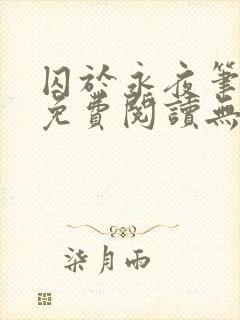 囚於永夜筆
免費閱讀無
柒月雨